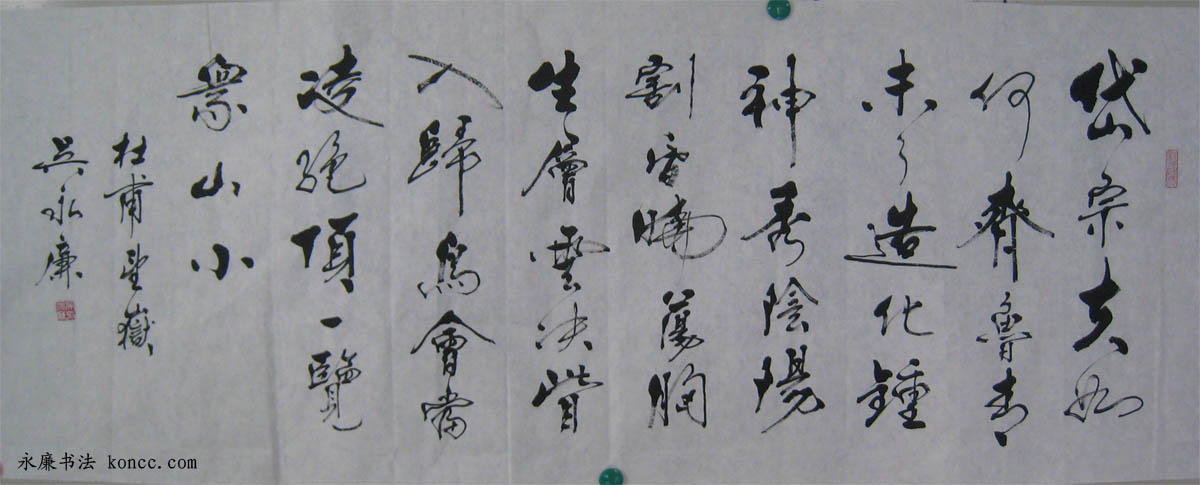 岱宗夫如
何齊魯青
未了造化鍾
神秀陰陽
割昏曉蕩胸
生層雲决眥
入歸鳥會當
凌絕頂一覽
衆山小
杜甫望嶽
吴永廉
永廉书法 koncc.com